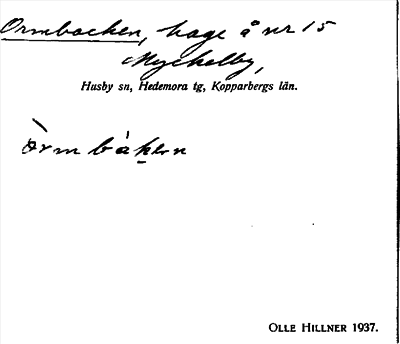 Ormbacken, hage å nr 15
Myckelby,
Husby sn, Hedemora tg, Kopparbergs län.
òrm bàkern
OLLE HILLNER 1937.